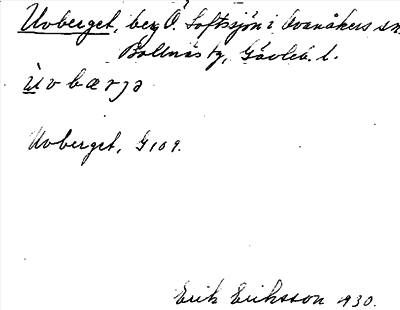 Uvberget, berg Ö. Loftssjön i Ovanåkers sn.
Bollnäs tg, Gävleb. l.
Ùvbærjə
Uvberget, G109.
Erik Eriksson 1930.